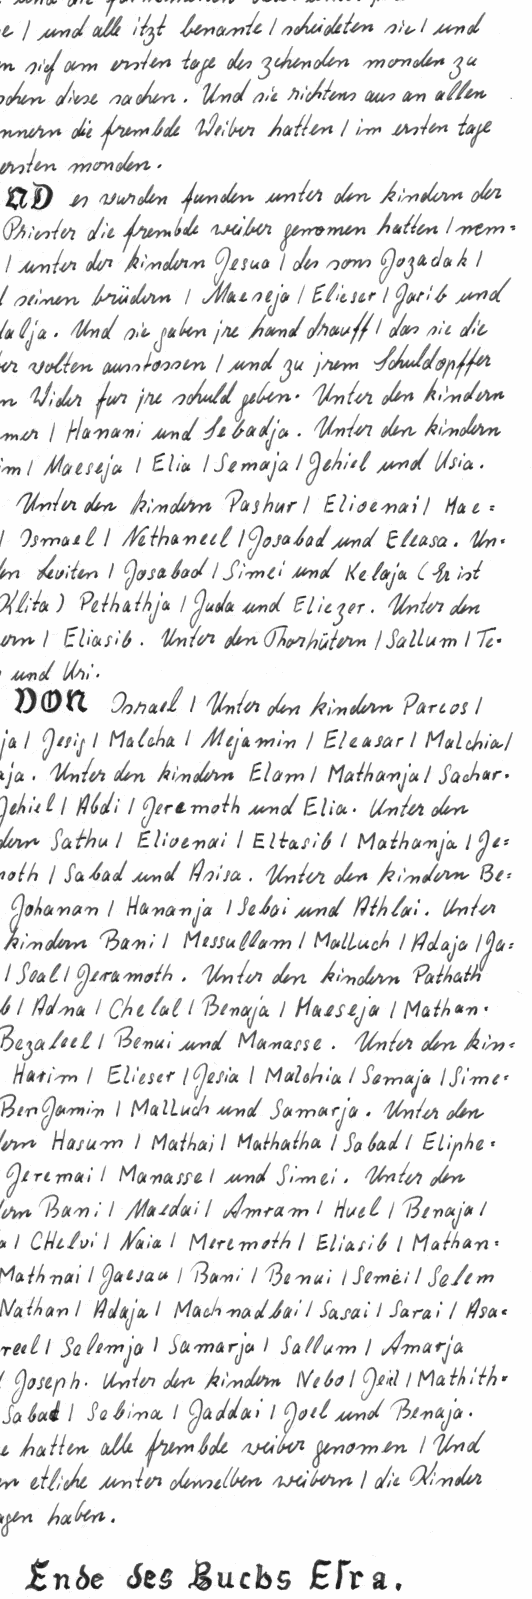 e / und alle itzt benante / scheideten sie / und
n sich am ersten tage des zehenden monden zu
schen diese sachen. Und sie richtens aus an allen
nnern die frembde Weiber hatten / im ersten tage
ersten monden.
ND es wurden funden unter den kindern der
Priester die frembde weiber genomen hatten / nem=
/ unter den kindern Jesua / des sons Jozadak /
seinen brüdern / Maeseja / Elieser / Jarib und
dalja. Und sie gaben jre hand drauff / das sie die
ber wolten ausstossen / und zu jrem Schuldopffer
n Wider fur jre schuld geben. Unter den kindern
mer / Hanani und Sebadja. Unter den kindern
im / Maeseja / Elia / Semaja / Jehiel und Usia.
Unter den kindern Pashur / Elioenai / Mae=
/ Ismael / Nethaneel / Josabad und Eleasa. Un=
en Leviten / Josabad / Simei und Kelaja (Er ist
Klita) Pethathja / Juda und Eliezer. Unter den
ern / Eliasib. Unter den Thorhütern / Sallum / Te=
und Uri.
VON Israel / Unter den kindern Pareos /
ja / Jesia / Malcha / Mejamin / Eleasar / Malchia /
aja. Unter den kindern Elam / Mathanja / Sachar=
Jehiel / Abdi / Jeremoth und Elia. Unter den
dern Sathu / Elioenai / Eltasib / Mathanja / Je=
moth / Sabad und Asisa. Unter den kindern Be=
Johanan / Hananja / Sebai und Athlai. Unter
kindern Bani / Messullam / Malluch / Adaja / Ja=
/ Seal / Jeramoth. Unter den kindern Pathath
b / Adna / Chelal / Benaja / Maeseja / Mathan=
Bezaleel / Benui und Manasse. Unter den kin=
Harim / Elieser / Jesia / Malchia / Semaja / Sime=
BenJamin / Malluch und Samarja. Unter den
dern Hasum / Mathai / Mathatha / Sabad / Eliphe=
Jeremai / Manasse / und Simei. Unter den
dern Bani / Maedai / Amram / Huel / Benaja /
a / CHelvi / Naia / Meremoth / Eliasib / Mathan=
Mathnai / Jaesau / Bani / Benui / Semei / Selem
Nathan / Adaja / Machnadbai / Sasai / Sarai / Asa=
reel / Selemja / Samarja / Sallum / Amarja
/ Joseph. Unter den kindern Nebo / Jeiel / Mathith=
Sabad / Sebina / Jaddai / Joel und Benaja.
e hatten alle frembde weiber genomen / Und
en etliche unter denselben weibern / die Kinder
agen haben.
Ende des Buchs Esra.